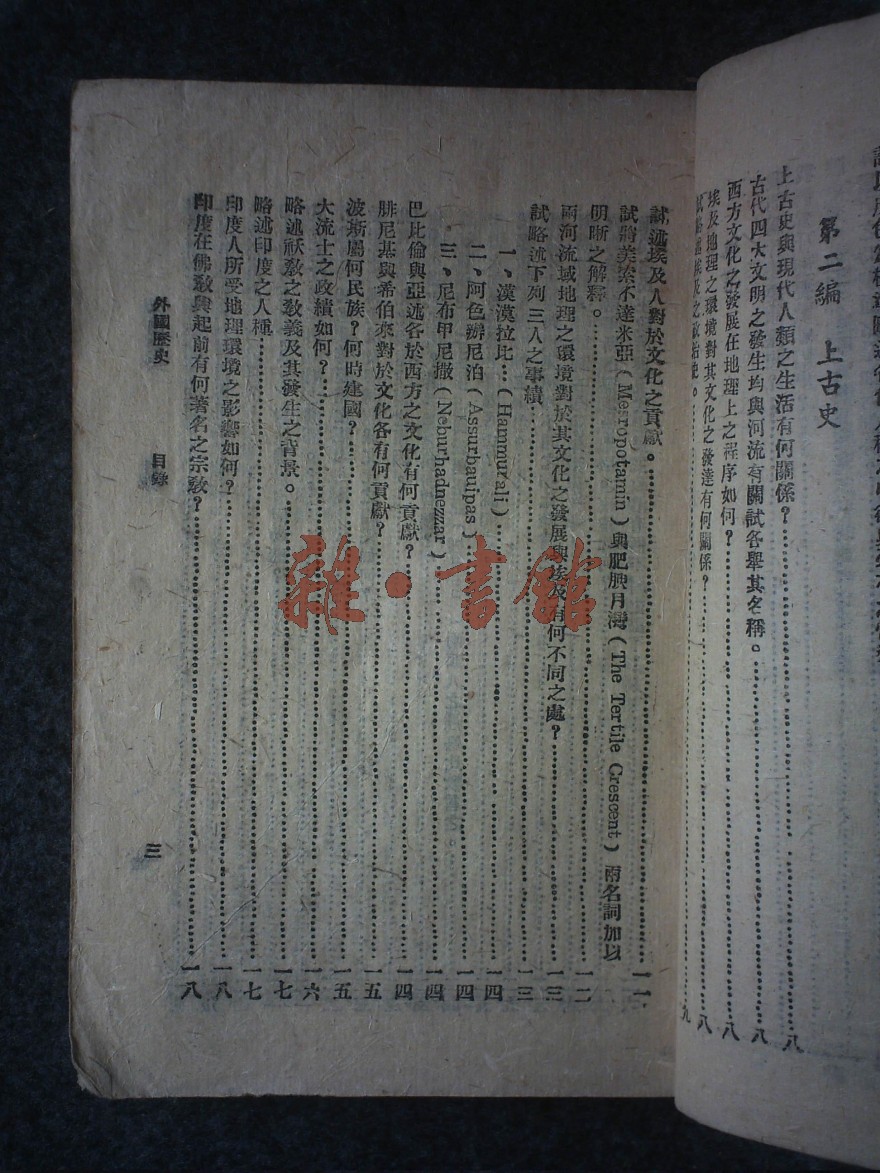 第二編　上古史
上古史與現代人類之生活有何關係？……八
古代四大文明之發生均與河流有關試各舉其名稱。……八
西方文化之發展在地理上之程序如何？……八
埃及地理之環境對其文化之發達有何關係？……八
試略述埃及之政治史。……九
試述埃及人對於文化之貢獻。……一一
試將美索不達米亞（Mesropotamin）與肥腴月灣（The Tertile Crescent）兩名詞加以
明晰之解釋。……一二
兩河流域地理之環境對於其文化之發展與埃及有何不同之處？……一三
試略述下列三人之事績……一三
一、漢漠拉比…（Hammurali）……一四
二、阿色辦尼泊（Assurbauipas）……一四
三、尼布甲尼撒（Neburhadnezzar）……一四
巴比倫與亞述各於西方之文化有何貢獻？……一四
腓尼基與希伯來對於文化各有何貢獻？……一五
波斯屬何民族？何時建國？……一五
大流士之政績如何？……一六
略述祆敎之敎義及其發生之背景。……一七
略述印度之人種……一七
印度人所受地理環境之影響如何？……一八
印度在佛敎興起前有何著名之宗敎？……一八
外國歷史　目錄　三
雜·書館